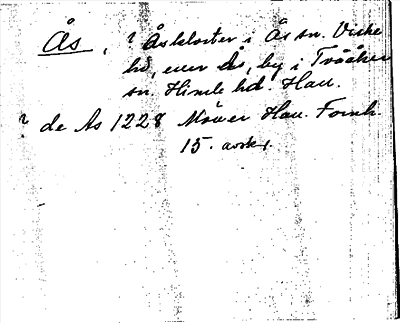 Ås, ? Åskloster i Ås sn. Viske
hd, eller Ås, by i Tvååker
sn. Himle hd. Hall.
? de As 1228 Möller Hall. Fornh.
15. avskr.